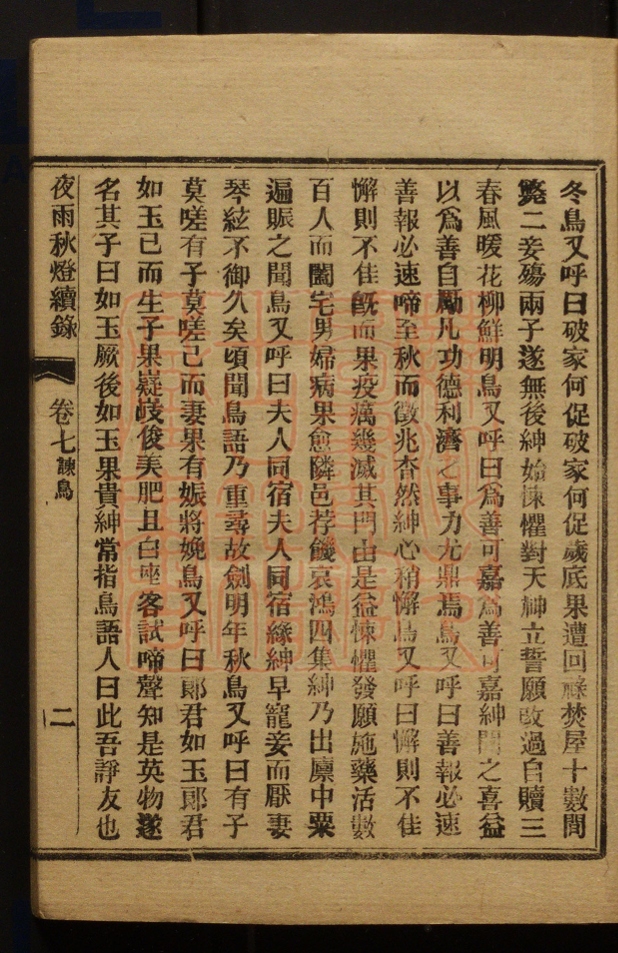 冬鳥又呼曰破家何促破家何促歲底果遭回祿焚屋十數間
斃二妾殤兩子遂無後紳始悚懼對天神立誓願改過自贖三
春風暖花柳鮮明鳥又呼曰爲善可嘉爲善可嘉紳聞之喜益
以爲善自勵凡功德利濟之事力尤鼎焉鳥又呼曰善報必速
善報必速啼至秋而徵兆杳然紳心稍懈鳥又呼曰懈則不佳
懈則不佳旣而果疫癘幾滅其門由是益悚懼發願施藥活數
百人而闔宅男婦病果愈隣邑荐饑哀鴻四集紳乃出廪中粟
遍賑之聞鳥又呼曰夫人同宿夫人同宿緣紳早寵妾而厭妻
琴絃不御久矣頃聞鳥語乃重尋故劍明年秋鳥又呼曰有子
莫嗟有子莫嗟已而妻果有娠將娩鳥又呼曰郞君如玉郞君
如玉已而生子果嶷歧俊美肥且白座客試啼聲知是英物遂
名其子曰如玉厥後如玉果貴紳常指鳥語人曰此吾諍友也
夜雨秋燈續錄 卷七 諫鳥 二